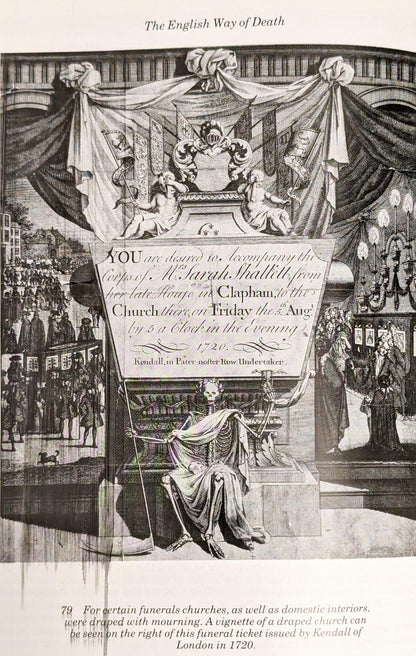 The English Way of Death
YOU are desired to Accompany the
Corps of Mrs. Sarah Thallett, from
her late House in Clapham, to the
Church there, on Friday the 5, Aug.
by 5 a Clock in the Evening
1720.
Kendall, in Pater-noster Row. Undertaker.
79 For certain funerals churches, as well as domestic interiors,
were draped with mourning. A vignette of a draped church can
be seen on the right of this funeral ticket issued by Kendall of
London in 1720.